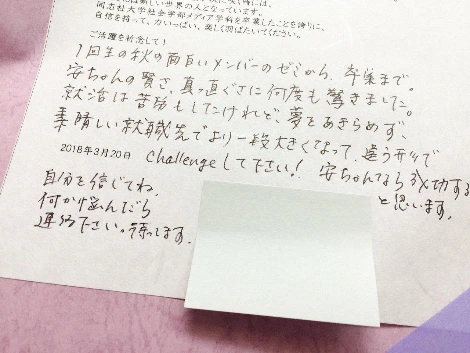 同志社大学社会学部メディア学科を卒業したことを誇りに、
自信を持って、力いっぱい、楽しく羽ばたいてください。
ご活躍を祈念して！
1回生の秋の面白いメンバーのゼミから、卒業まで。
安ちゃんの賢さ、真っ直ぐさに何度も驚きました。
就活は苦労もしたけれど、夢をあきらめず、
素晴しい就職先でより一段大きくなって、違う形で
2018年3月20日 challengeして下さい！ 安ちゃんなら成功する
と思います。
自分を信じてね。
何か悩んだら
連絡下さい。待ってます。